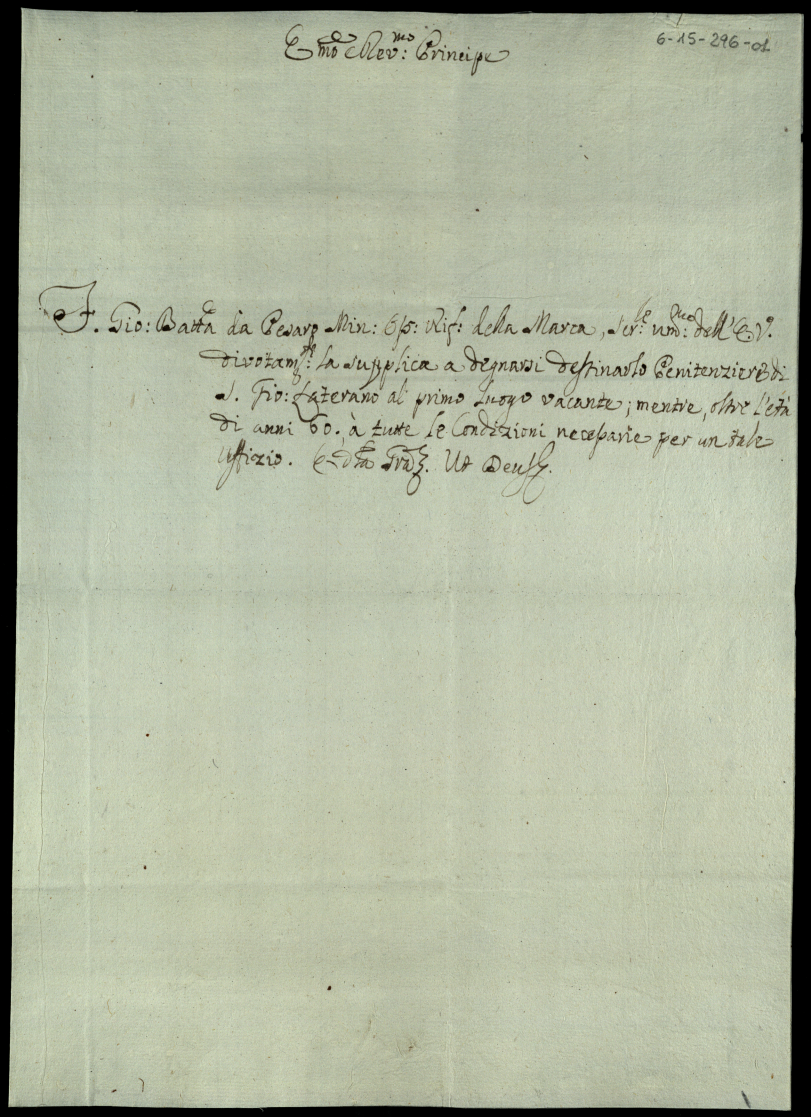 6-15-296-01
Emo e Revmo: Principe
F. Gio: Batta da Pesaro Min: Oss: Rif: della Marca, Serre umo: dell'E. V.
divotamte: la supplica a degnarsi destinarlo Penitenziere di
S. Gio: Laterano al primo luogo vacante; mentre, oltre l'età
di anni 60., à tutte le Condizioni necessarie per un tale
Uffizio. E dta Graz. Ut Deus